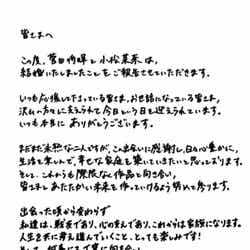 皆さまへ
この度、菅田将暉と小松菜奈は、
結婚いたしましたことをご報告させていただきます。
いつも応援して下さっている皆さま、お世話になっている皆さま、
沢山の方々に支えられて今日という日を迎えられています。
いつも本当にありがとうございます。
まだまだ未熟な二人ですが、この出会いに感謝し、日々心豊かに、
生活を楽しんで、幸せな家庭を築いていきたいと思っております。
そして、これからも際限なく作品と向き合い、
皆さまとあたたかい未来を作っていけるよう努めて参ります。
出会った頃から変わらず
私達は、戦友であり、心の支えであり、これからは家族になります。
人生を共に考え進んでいくこと、とっても楽しみです！